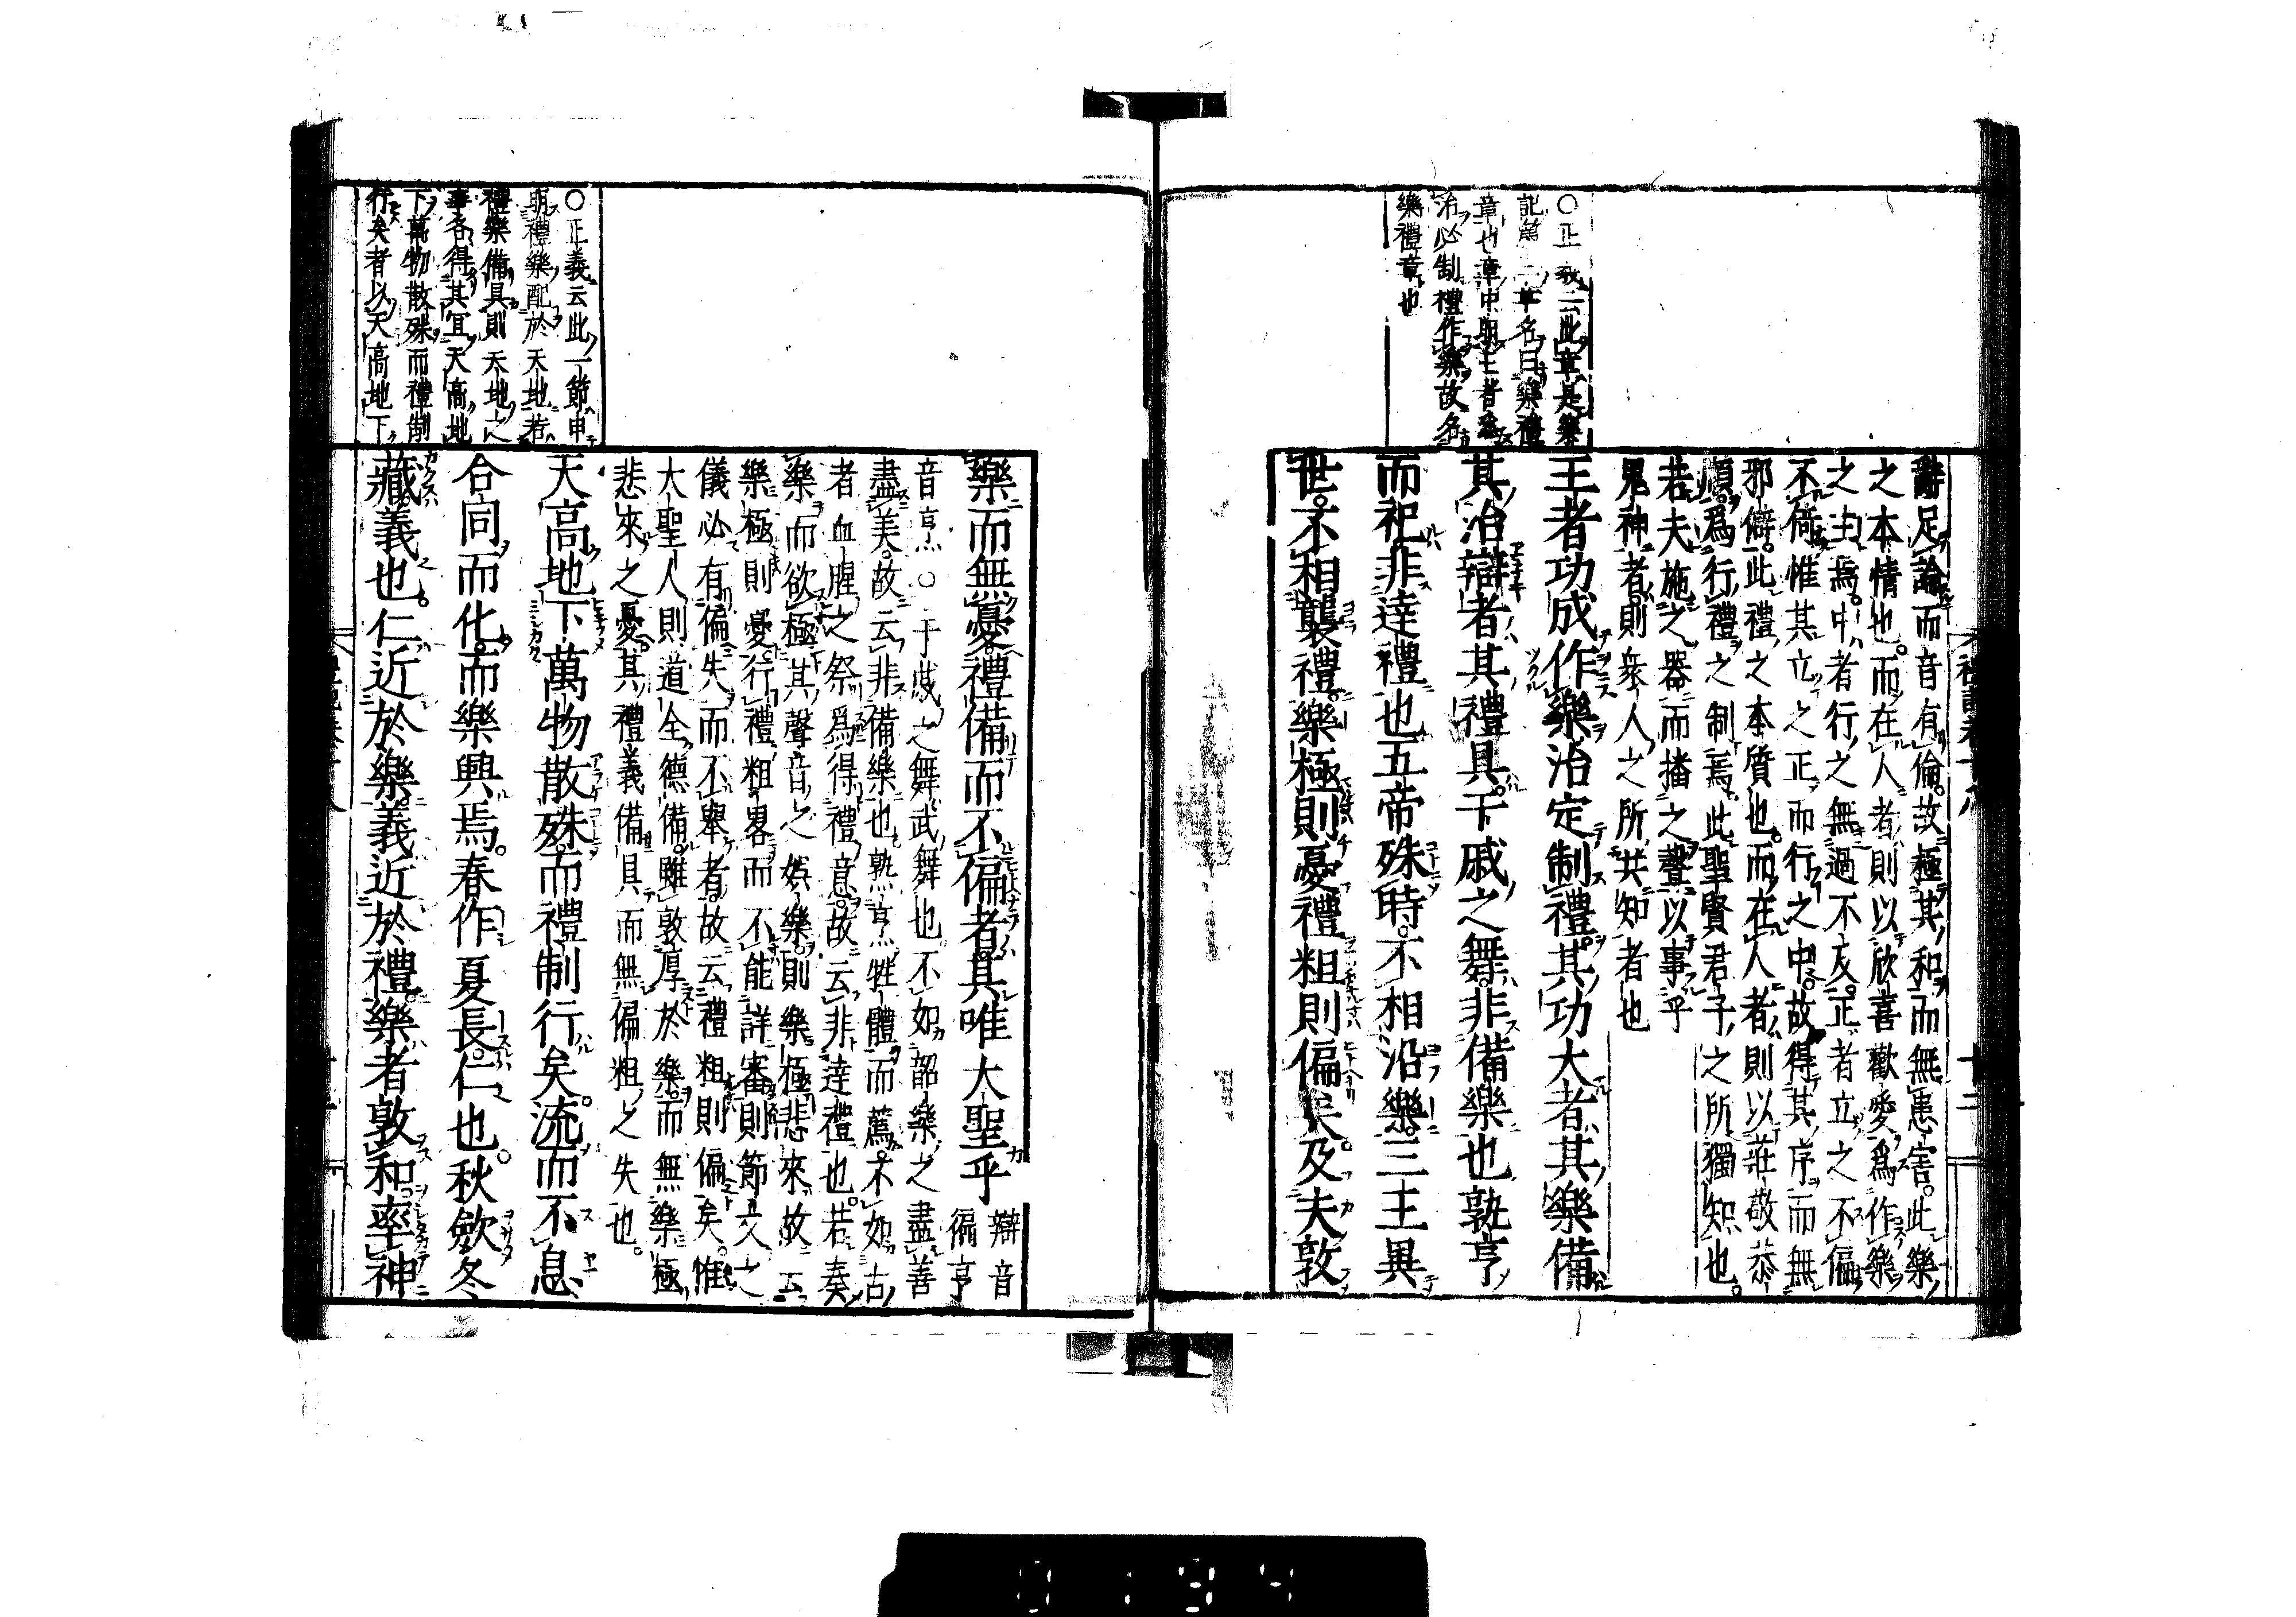 ○正 云此章是樂
記第二章名曰樂禮
章也章中明王者爲
治必制禮作樂故名
樂禮章也
辭足論而音有倫故極其和而無患害此樂
之本情也而在人者則以欣喜歡愛爲作樂
之主焉中者行之無過不及正者立之不偏
不倚惟其立之正而行之中故得其序而無
邪僻此禮之本質也而在人者則以莊敬恭
順爲行禮之制焉此聖賢君子之所獨知也
若夫施之器而播之聲以事乎
鬼神者則衆人之所共知者也
王者功成作樂治定制禮其功大者其樂備
其治辯者其禮具干戚之舞非備樂也孰亨
而祀非達禮也五帝殊時不相沿樂三王異
世不相襲禮樂極則憂禮粗則偏矣及夫敦
○正義云此一節申
明禮樂配於天地若
禮樂備具則天地之
事各得其宜天高地
下萬物散殊而禮制
行矣者以天高地下
樂而無憂禮備而不偏者其唯大聖乎 辯音
徧亨
音烹○干戚之舞武舞也不如韶樂之盡善
盡美故云非備樂也熟烹牲體而薦不如古
者血腥之祭爲得禮意故云非達禮也若奏
樂而欲極其聲音之娛樂則樂極悲來故云
樂極則憂行禮粗畧而不能詳審則節文之
儀必有偏失而不舉者故云禮粗則偏矣惟
大聖人則道全德備雖敦厚於樂而無樂極
悲來之憂其禮義備具而無偏粗之失也
天高地下萬物散殊而禮制行矣流而不息
合同而化而樂興焉春作夏長仁也秋斂冬
藏義也仁近於樂義近於禮樂者敦和率神